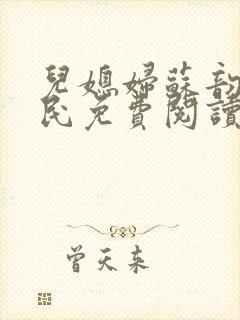 兒媳婦蘇韵
民免費閱讀
曾天来